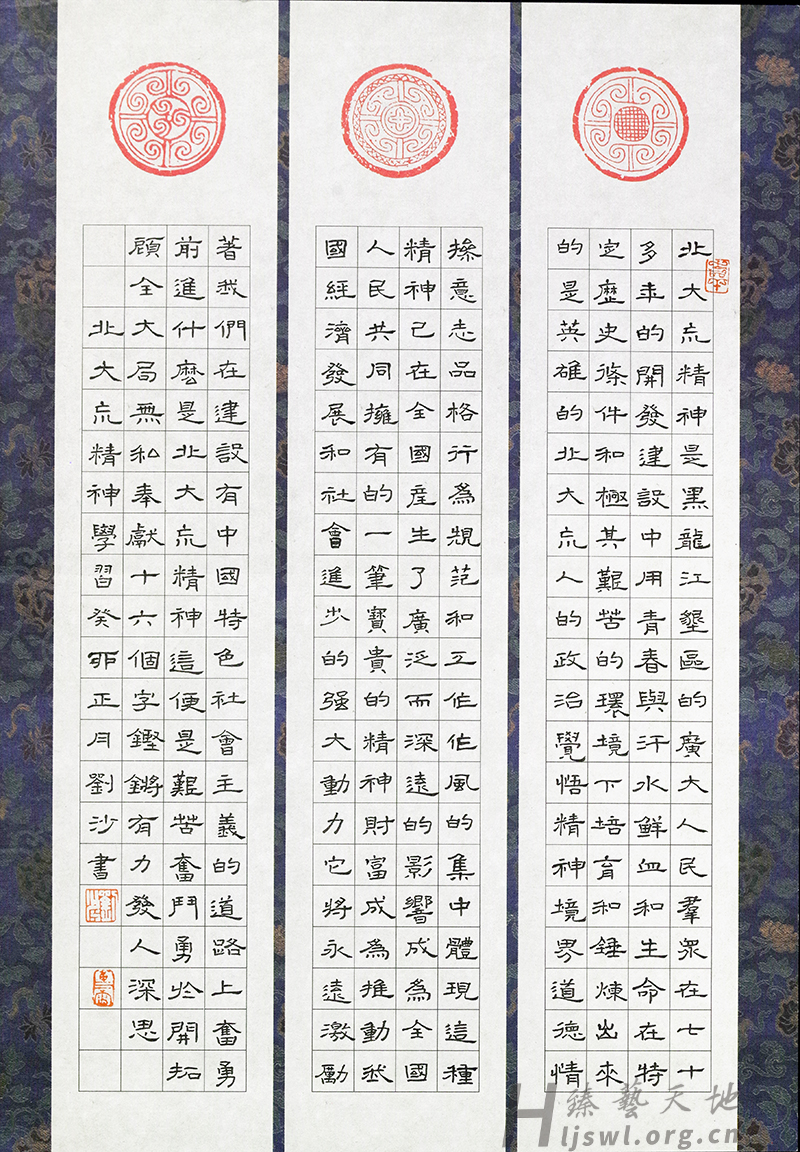 北大荒精神是黑龍江墾區的廣大人民羣眾在七十
多年的開發建設中用青春與汗水鮮血和生命在特
定歷史條件和極其艱苦的環境下培育和錘煉出來
的是英雄的北大荒人的政治覺悟精神境界道德情
操意志品格行為規范和工作作風的集中體現這種
精神已在全國產生了廣泛而深遠的影響成為全國
人民共同擁有的一筆寶貴的精神財富成為推動我
國經濟發展和社會進步的强大動力它將永遠激勵
著我們在建設有中國特色社會主義的道路上奮勇
前進什麼是北大荒精神這便是艱苦奮鬥勇於開拓
顧全大局無私奉獻十六個字鏗鏘有力發人深思
北大荒精神學習癸卯正月劉沙書
臻藝天地
Hljswl.org.cn